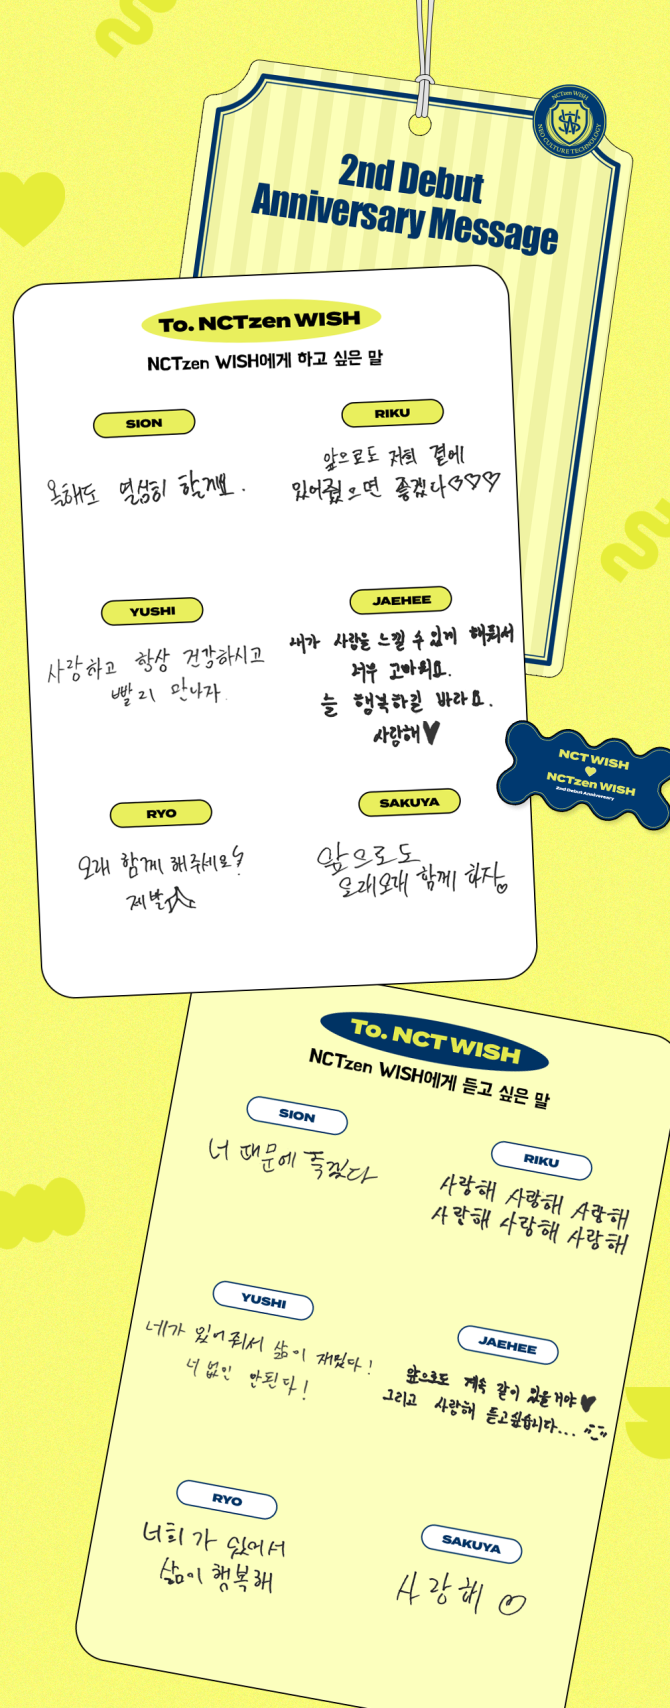 NCTzen WISH
NEO CULTURE TECHNOLOGY
2nd Debut
Anniversary Message
To. NCTzen WISH
NCTzen WISH에게 하고 싶은 말
SION
올해도 열심히 할게요.
RIKU
앞으로도 저희 곁에
있어줬으면 좋겠다♡♡♡
YUSHI
사랑하고 항상 건강하시고
빨리 만나자.
JAEHEE
내가 사랑을 느낄 수 있게 해줘서
너무 고마워요.
늘 행복하길 바라요.
사랑해♥
RYO
오래 함께 해주세요?
제발
SAKUYA
앞으로도
오래오래 함께 하자♡
NCT WISH
♥
NCTzen WISH
2nd Debut Anniversary
To. NCT WISH
NCTzen WISH에게 듣고 싶은 말
SION
너 때문에 독깄다
RIKU
사랑해 사랑해 사랑해
사랑해 사랑해 사랑해
YUSHI
네가 있어줘서 삶이 재밌다!
너 없인 안된다!
JAEHEE
앞으로도 계속 같이 있을거야♥
그리고 사랑해 듣고싶습니다...
RYO
너희가 있어서
삶이 행복해
SAKUYA
사랑해♡